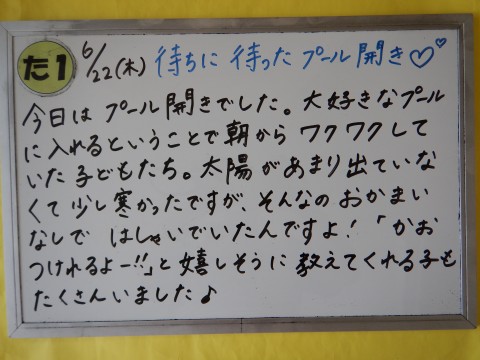 た1 6/22(木) 待ちに待ったプール開き♡♡
今日はプール開きでした。大好きなプール
に入れるということで朝からワクワクして
いた子どもたち。太陽があまり出ていな
くて少し寒かったですが、そんなのおかまい
なしで はしゃいでいたんですよ!「かお
つけれるよー!!」と嬉しそうに教えてくれる子も
たくさんいました♪